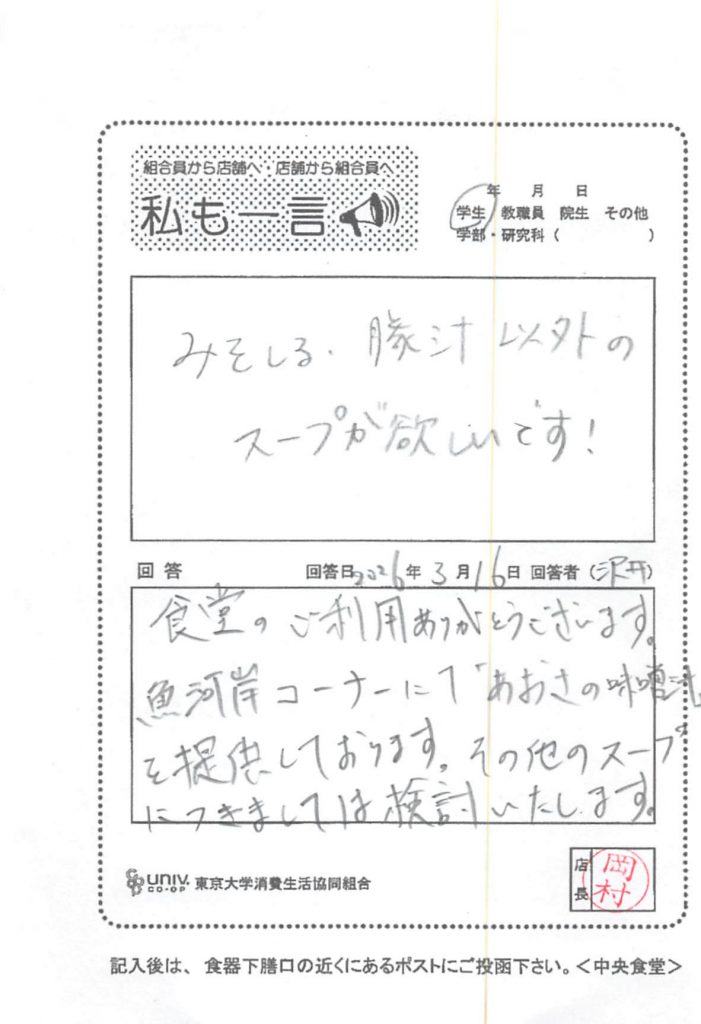 組合員から店舗へ・店舗から組合員へ
私も一言
年 月 日
学生 教職員 院生 その他
学部・研究科( )
みそしる、豚汁以外の
スープが欲しいです!
回答 回答日2026年3月16日 回答者(沢井)
食堂のご利用ありがとうございます。
魚河岸コーナーにて「あおさの味噌汁」
を提供しております。その他のスープ
につきましては検討いたします。
UNIV. CO-OP 東京大学消費生活協同組合
店長 岡村
記入後は、食器下膳口の近くにあるポストにご投函下さい。<中央食堂>